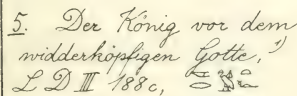 5. Der König vor dem
widderköpfigen Gotte, 1)
L D III 188c,